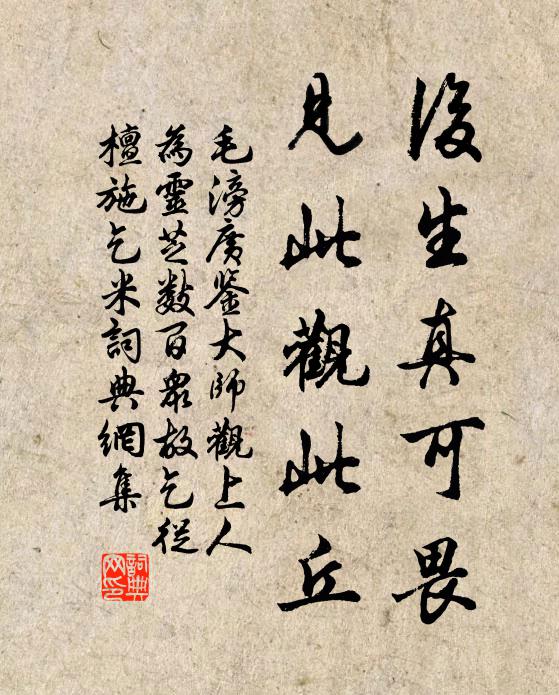 後生真可畏
見此觀此丘
毛滂廣鉴大師觀上人
為靈芝数百眾故乞從
檀施乞米詞典網集
詞典
网印